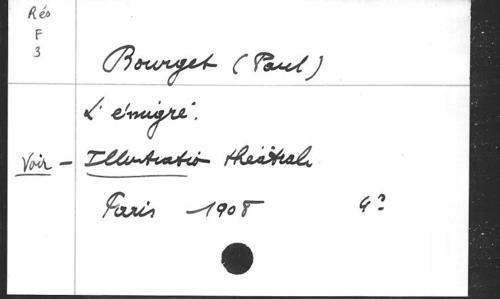 Rés
F
3
Bourget (Paul)
L'émigré.
Voir - Illustration théâtrale
Paris 1908 4º